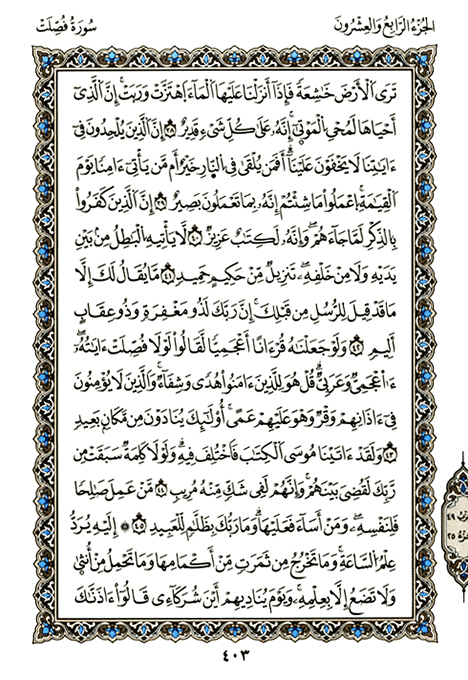 الجُزْءُ الرَّابِعُ وَالعِشْرُونَ
سُورَةُ فُصِّلَتْ
تَرَى اَلْأَرْضَ خَٰشِعَةً فَإِذَا أَنزَلْنَا عَلَيْهَا اَلْمَاءَ اَهْتَزَّتْ وَرَبَتْ إِنَّ اَلَّذِي
أَحْيَاهَا لَمُحْيِ اِلْمَوْتَىٰ إِنَّهُۥ عَلَىٰ كُلِّ شَيْءٍ قَدِيرٌ ٣٨ إِنَّ اَلَّذِينَ يُلْحِدُونَ فِي
ءَايَٰتِنَا لَا يَخْفَوْنَ عَلَيْنَا أَفَمَن يُلْقَىٰ فِي اِلنَّارِ خَيْرٌ أَم مَّن يَأْتِي ءَامِنًا يَوْمَ
اَلْقِيَٰمَةِ اِعْمَلُوا مَا شِئْتُمْ إِنَّهُۥ بِمَا تَعْمَلُونَ بَصِيرٌ ٣٩ إِنَّ اَلَّذِينَ كَفَرُوا
بِالذِّكْرِ لَمَّا جَاءَهُمْ وَإِنَّهُۥ لَكِتَٰبٌ عَزِيزٌ ٤٠ لَّا يَأْتِيهِ اِلْبَٰطِلُ مِن بَيْنِ
يَدَيْهِ وَلَا مِنْ خَلْفِهِۦ تَنزِيلٌ مِّنْ حَكِيمٍ حَمِيدٍ ٤١ مَّا يُقَالُ لَكَ إِلَّا
مَا قَدْ قِيلَ لِلرُّسُلِ مِن قَبْلِكَ إِنَّ رَبَّكَ لَذُو مَغْفِرَةٍ وَذُو عِقَابٍ
أَلِيمٍ ٤٢ وَلَوْ جَعَلْنَٰهُ قُرْءَانًا أَعْجَمِيًّا لَّقَالُوا لَوْلَا فُصِّلَتْ ءَايَٰتُهُۥ
ءَاعْجَمِيٌّ وَعَرَبِيٌّ قُلْ هُوَ لِلَّذِينَ ءَامَنُوا هُدًى وَشِفَاءٌ وَاَلَّذِينَ لَا يُؤْمِنُونَ
فِي ءَاذَانِهِمْ وَقْرٌ وَهُوَ عَلَيْهِمْ عَمًى أُوْلَٰئِكَ يُنَادَوْنَ مِن مَّكَانٍ بَعِيدٍ
٤٣ وَلَقَدْ ءَاتَيْنَا مُوسَى اَلْكِتَٰبَ فَاخْتُلِفَ فِيهِ وَلَوْلَا كَلِمَةٌ سَبَقَتْ مِن
رَّبِّكَ لَقُضِيَ بَيْنَهُمْ وَإِنَّهُمْ لَفِي شَكٍّ مِّنْهُ مُرِيبٍ ٤٤ مَّنْ عَمِلَ صَٰلِحًا
فَلِنَفْسِهِۦ وَمَنْ أَسَاءَ فَعَلَيْهَا وَمَا رَبُّكَ بِظَلَّٰمٍ لِّلْعَبِيدِ ٤٥ ۞ إِلَيْهِ يُرَدُّ
عِلْمُ اُلسَّاعَةِ وَمَا تَخْرُجُ مِن ثَمَرَٰتٍ مِّنْ أَكْمَامِهَا وَمَا تَحْمِلُ مِنْ أُنثَىٰ
وَلَا تَضَعُ إِلَّا بِعِلْمِهِۦ وَيَوْمَ يُنَادِيهِمْ أَيْنَ شُرَكَاءِي قَالُوا ءَاذَنَّٰكَ
٤٩
٢٥
٤٠٣